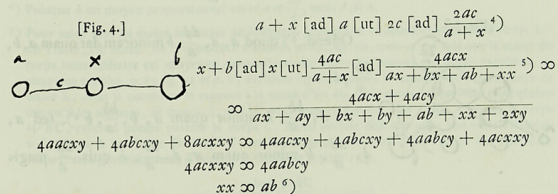 [Fig. 4.]
a + x [ad] a [ut] 2c [ad] 2ac / a + x 4)
a x b
c
x + b [ad] x [ut] 4ac / a + x [ad] 4acx / ax + bx + ab + xx 5) ∞
∞ 4acx + 4acy / ax + ay + bx + by + ab + xx + 2xy
4aacxy + 4abcxy + 8acxxy ∞ 4aacxy + 4abcxy + 4aabcy + 4acxxy
4acxxy ∞ 4aabcy
xx ∞ ab 6)